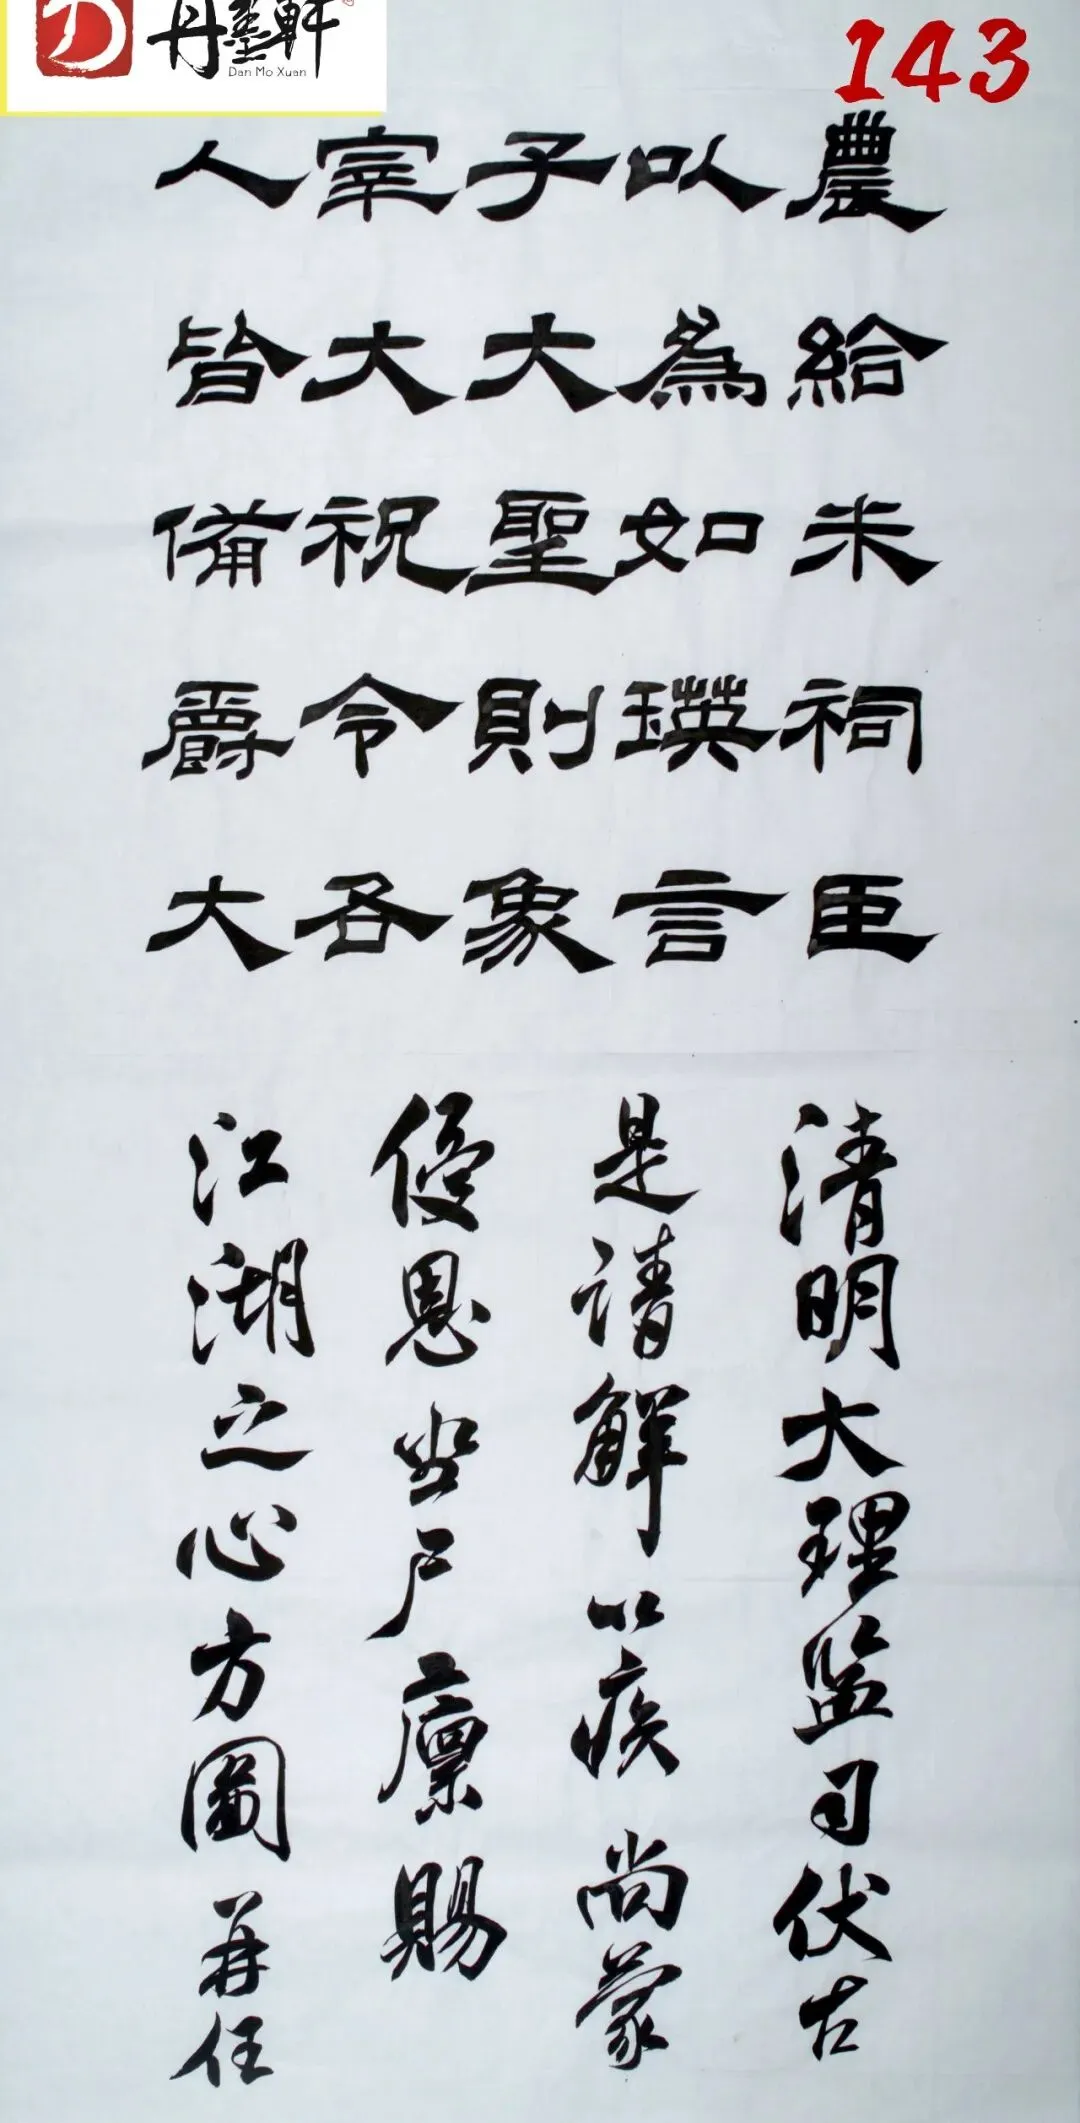 丹墨軒
Dan Mo Xuan
143
農給米祠臣
以為如瑛言
子大聖則象
宰大祝令各
人皆備爵大
清明大理監司伏古
是請解以疾尚蒙
優恩坐尸廩賜
江湖之心方圖再任